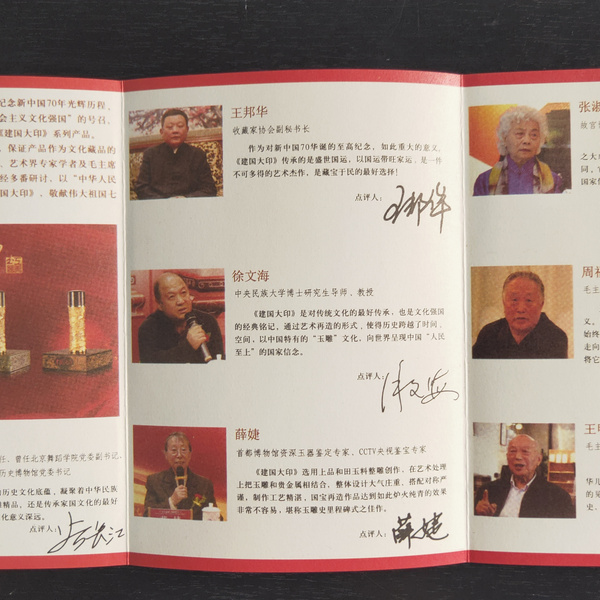 纪念新中国70年光辉历程、
会主义文化强国”的号召、
《建国大印》系列产品。
、保证产品作为文化藏品的
、艺术界专家学者及毛主席
经多番研讨，以“中华人民
国大印》，敬献伟大祖国七
任、曾任北京舞蹈学院党委副书记、
历史博物馆党委书记
的历史文化底蕴，凝聚着中华民族
雕精品，还是传承家国文化的最好
化意义深远。
点评人：
王邦华
收藏家协会副秘书长
作为对新中国70华诞的至高纪念，如此重大的意义，
《建国大印》传承的是盛世国运，以国运带旺家运，是一件
不可多得的艺术杰作，是藏宝于民的最好选择！
点评人：
王邦华
徐文海
中央民族大学博士研究生导师、教授
《建国大印》是对传统文化的最好传承，也是文化强国
的经典铭记，通过艺术再造的形式，使得历史跨越了时间、
空间，以中国特有的“玉雕”文化，向世界呈现中国“人民
至上”的国家信念。
点评人：
徐文海
薛婕
首都博物馆资深玉器鉴定专家，CCTV央视鉴宝专家
《建国大印》选用上品和田玉料整雕创作，在艺术处理
上把玉雕和贵金属相结合，整体设计大气庄重，搭配对称严
谨，制作工艺精湛，国宝再造作品达到如此炉火纯青的效果
非常不容易，堪称玉雕史里程碑式之佳作。
点评人：
薛婕
张淑
故宫
之大
同，
国家
毛主
义。
始终
走向
将它
毛主
华儿
的，
是见
史、